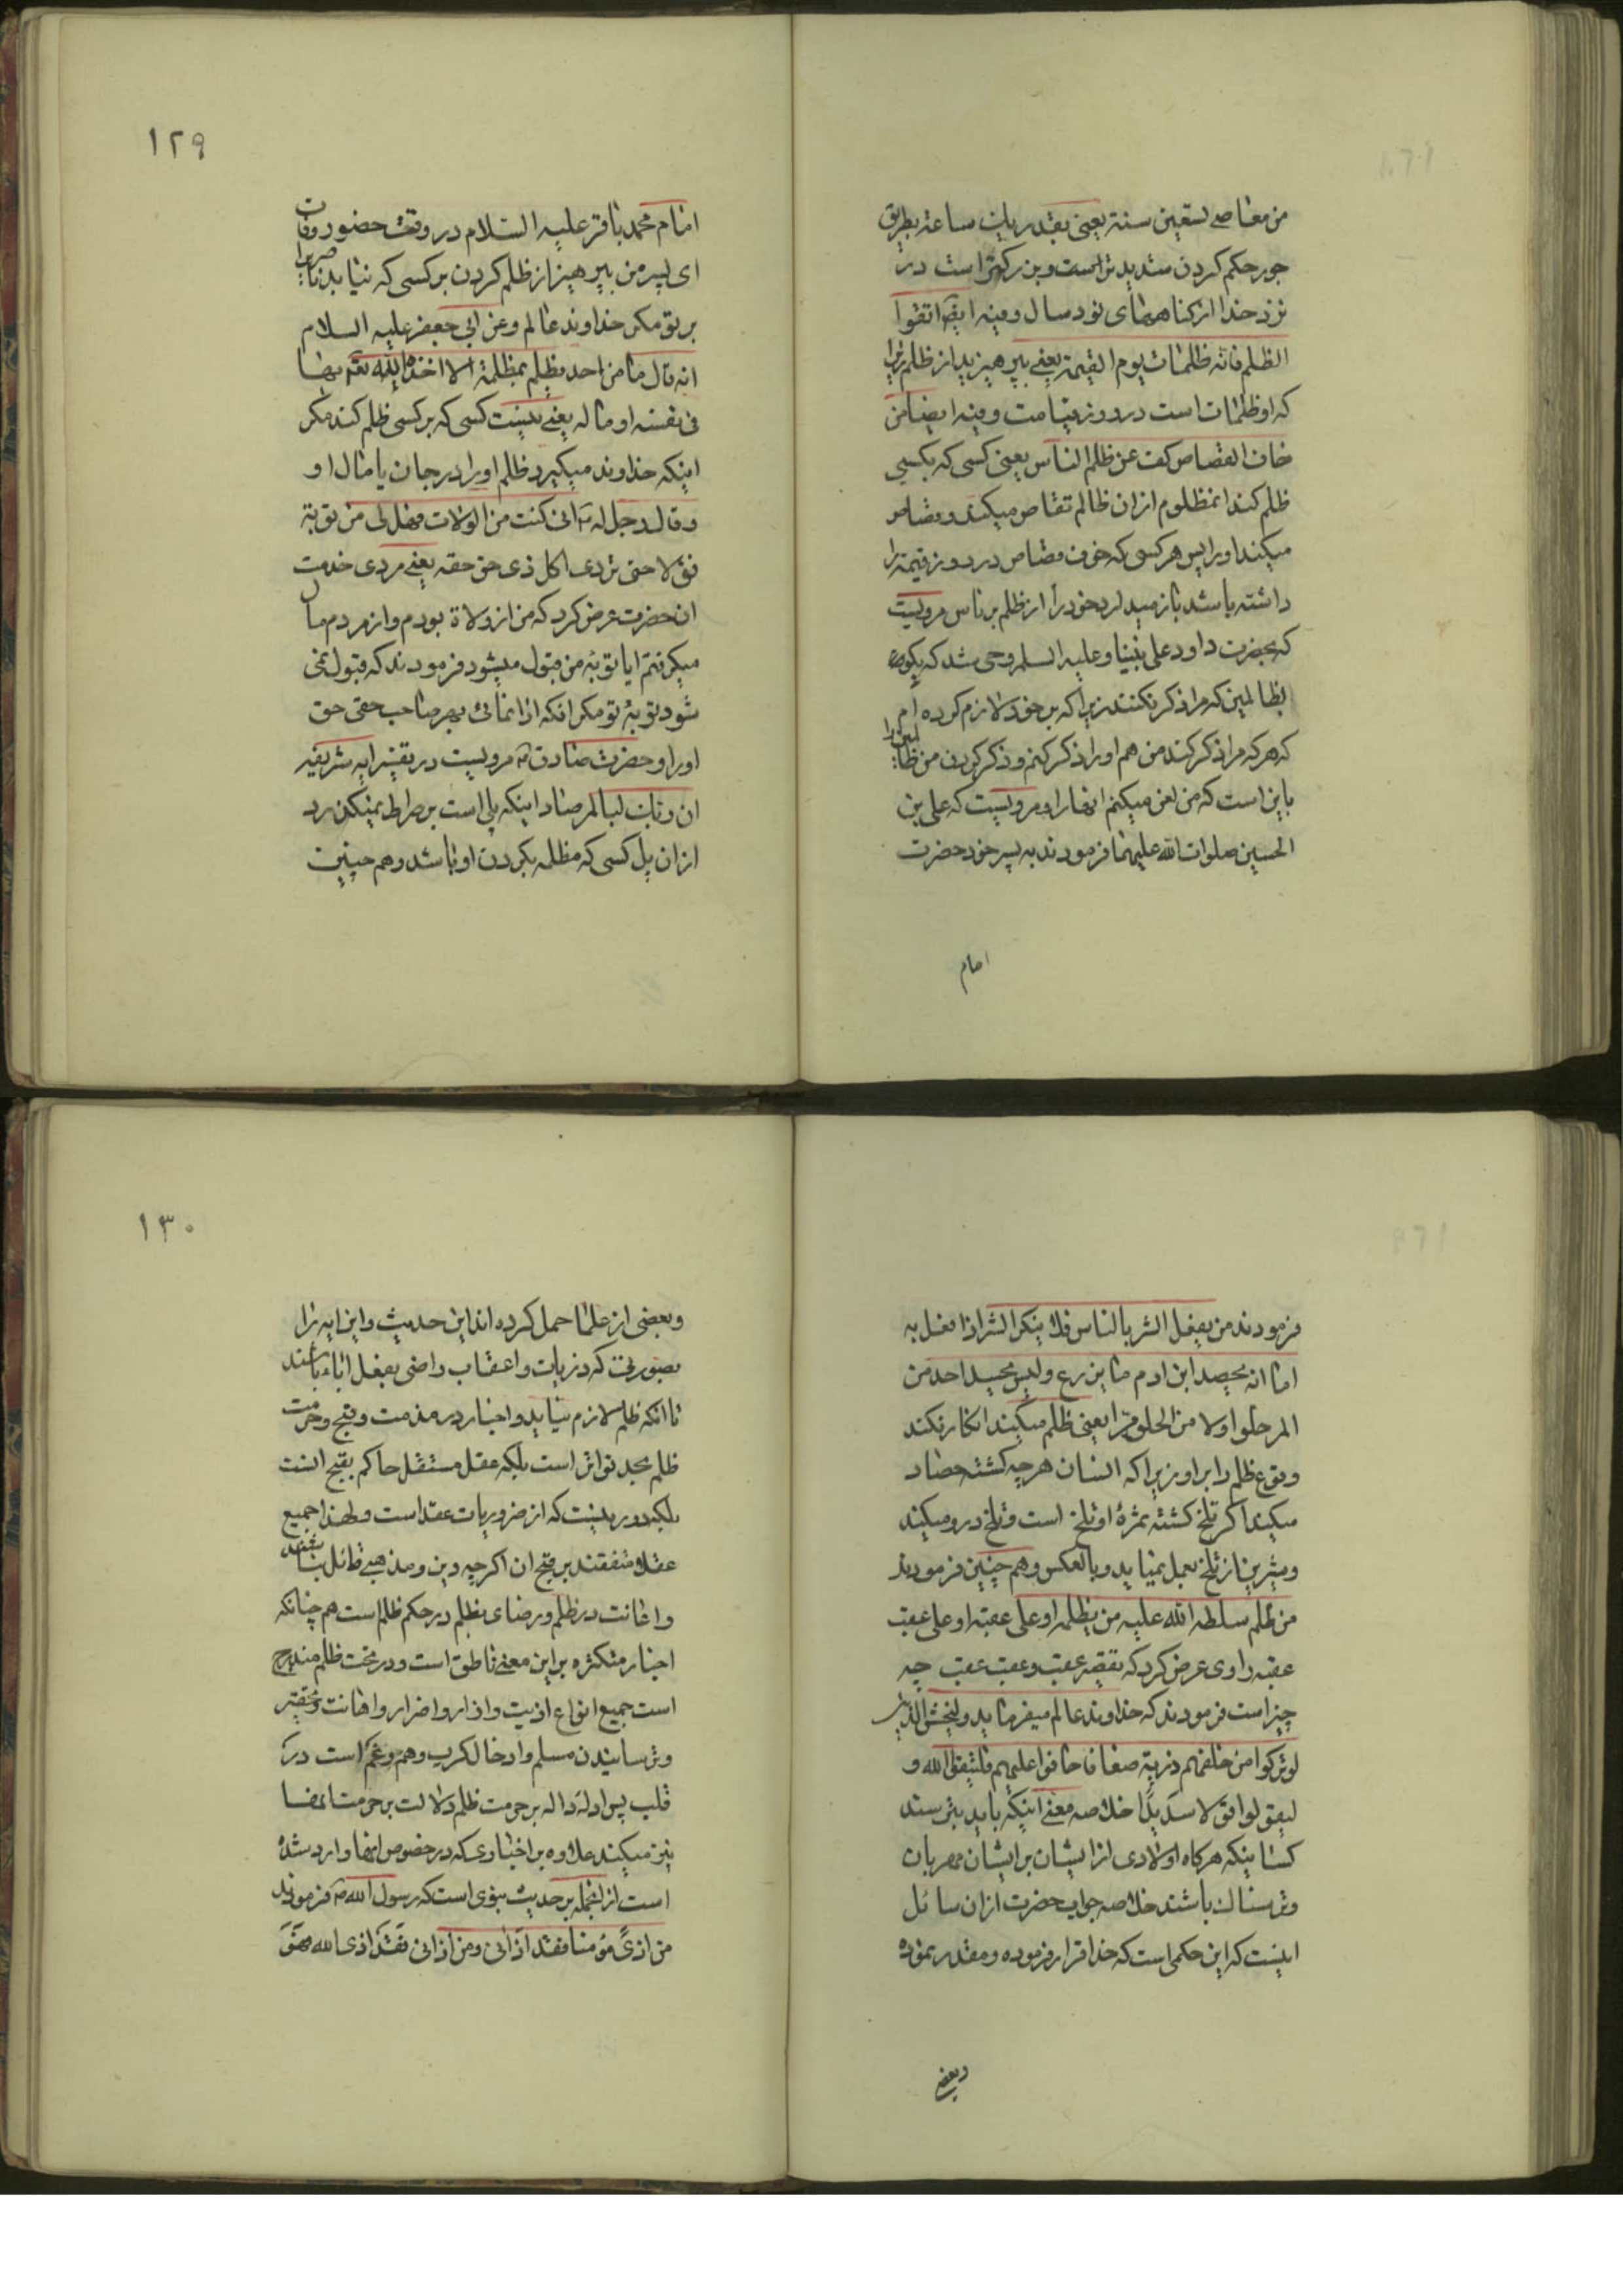 من معاصی تسعین سنة یعنی بقدر یک ساعة بطریق
جور حکم کردن شدیدتر است و بزرکتر است در
نزد خدا از کناههای نود سال و فیه ایضا اتقوا
الظلم فانه ظلمات یوم القیمة یعنی بپرهیزید از ظلم زیرا
که او ظلمات است در روز قیامت و فیه ایضا من
خاف القصاص کف عن ظلم الناس یعنی کسی که بکسی
ظلم کند انمظلوم از ان ظالم تقاص میکند و قصاص
میکند او را پس هر کسی که خوف قصاص در روز قیمة را
داشته باشد باز میدارد خود را از ظلم بر ناس مرویست
که بحضرت داود علی نبینا و علیه السلم وحی شد که بکو
بظالمین که مرا ذکر نکنند زیرا که بر خود لازم کرده ام
که هر که مرا ذکر کند من هم او را ذکر کنم و ذکر کردن من ظالمین را
باین است که من لعن میکنم انها را و مرویست که علی بن
الحسین صلوات الله علیهما فرمودند به پسر خود حضرت
امام
۱۲۹
امام محمد باقر علیه السلام در وقت حضور وفات
ای پسر من بپرهیز از ظلم کردن بر کسی که نیابد ناصری را
بر تو مکر خداوند عالم و عن ابی جعفر علیه السلام
انه قال ما من احد یظلم بمظلمة الا اخذه الله تعه بها
فی نفسه او ماله یعنی نیست کسی که بر کسی ظلم کند مکر
اینکه خداوند میکیرد ظلم او را در جان یا مال او
و قال رجل له انی کنت من الولات فهل لی من توبة
فق لا حتی تردی الکل ذی حق حقه یعنی مردی خدمت
ان حضرت عرض کرد که من از ولاة بودم و از مردم مال
میکرفتم ایا توبه من قبول میشود فرمودند که قبول نمی
شود توبهٔ تو مکر انکه ادا نمائی بهر صاحب حقی حق
او را و حضرت صادق مرویست در تفسیر ایه شریفه
ان ربک لبالمرصاد اینکه پلی است بر صراط نمیکذرد
از ان پل کسی که مظلمه بکردن او باشد و هم چنین
فرمودند من یفعل الشر بالناس فلا ینکر الشر اذا فعل به
اما انه یحصد ابن ادم ما یزرع و لیس یحصد احد من
المر حلوا و لا من الحلو مرا یعنی ظلم میکند انکار نکند
وقوع ظلم را بر او زیرا که انسان هر چه کشته حصاد
میکند اکر تلخ کشته ثمرهٔ او تلخ است و تلخ درو میکند
و شیرین از تلخ بعمل نمیاید و بالعکس و هم چنین فرمودند
من ظلم سلطه الله علیه من یظلمه او علی عقبه او علی عقب
عقبه راوی عرض کرد که تقصیر عقب و عقب عقب چه
چیز است فرمودند که خداوند عالم میفرماید و لیخش الذین
لو ترکوا من خلفهم ذریة ضعافا خافوا علیهم فلیتقوا الله و
لیقولوا قولا سدیدًا خلاصه معنی اینکه باید بترسند
کسانیکه هر کاه اولادی از ایشان بر ایشان مهربان
و ترسناک باشند خلاصه جواب حضرت از ان سائل
اینست که این حکمی است که خدا قرار فرموده و مقدر نموده
وبعضی
۱۳۰
وبعضی از علما حمل کرده اند این حدیث و این ایه را
بصورتی که ذریات و اعقاب راضی بفعل اباء باشند
تا انکه ظلم لازم نیاید و اخبار در مذمت و قبح و حرمت
ظلم بحد تواتر است بلکه عقل مستقل حاکم بقبح انست
بلکه دور نیست که از ضروریات عقل است و لهذا جمیع
عقلا متفقند بر قبح ان اکر چه دین و مذهبی قائل نباشند
و اعانت در ظلم و رضای بظلم در حکم ظلم است هم چنانکه
اخبار متکثره بر این معنی ناطق است و در تحت ظلم مندرج
است جمیع انواع اذیت و اذار و اضرار و اهانت و تحقیر
و ترسانیدن مسلم و ادخال کرب و هم و غم است در
قلب پس ادلهٔ داله بر حرمت ظلم دلالت بر حرمت انها
نیز میکند علاوه بر اخباری که در خصوص انها وارد شده
است از انجمله بر حدیث نبوی است که رسول الله فرمودند
من اذیً مؤمنا فقد اذانی و من اذانی فقد اذی الله فهو